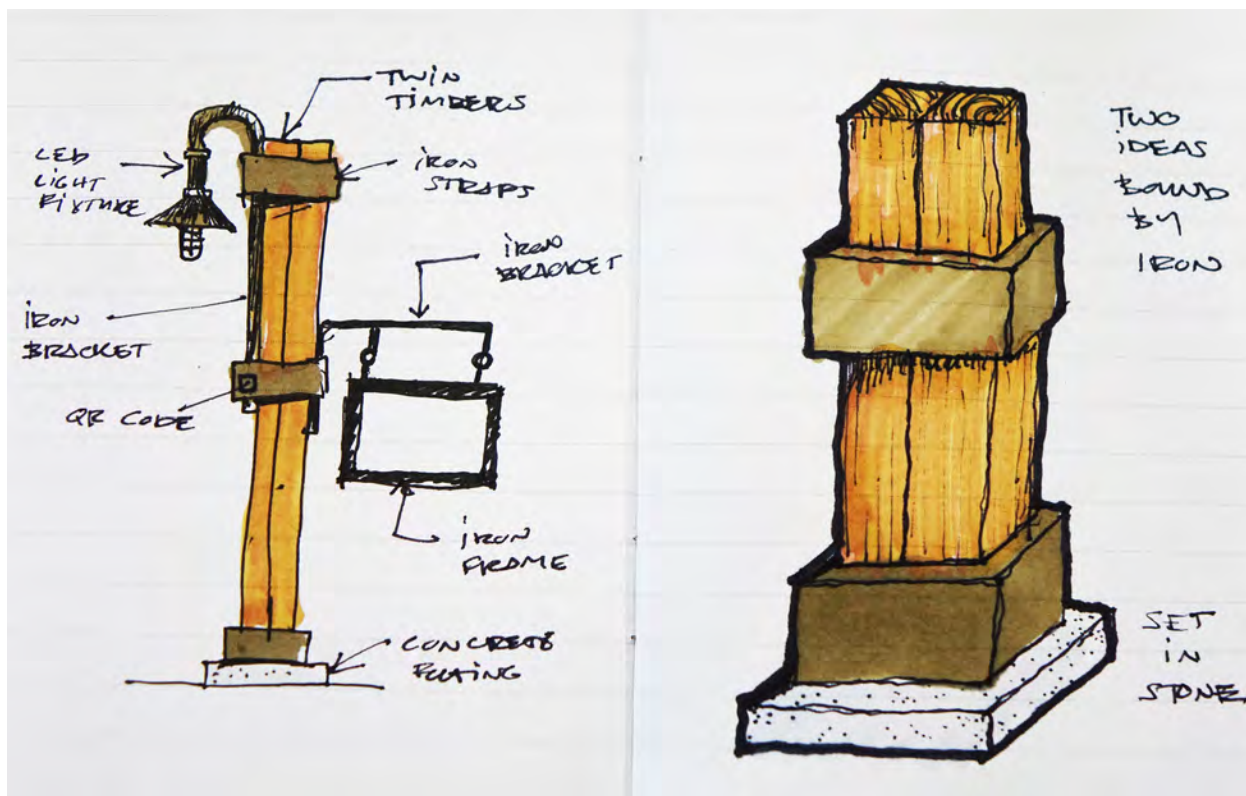 TWIN
TIMBERS
LED
LIGHT
FIXTURE
IRON
STRAPS
IRON
BRACKET
IRON
BRACKET
QR CODE
IRON
FRAME
CONCRETE
FOOTING
TWO
IDEAS
BOUND
BY
IRON
SET
IN
STONE